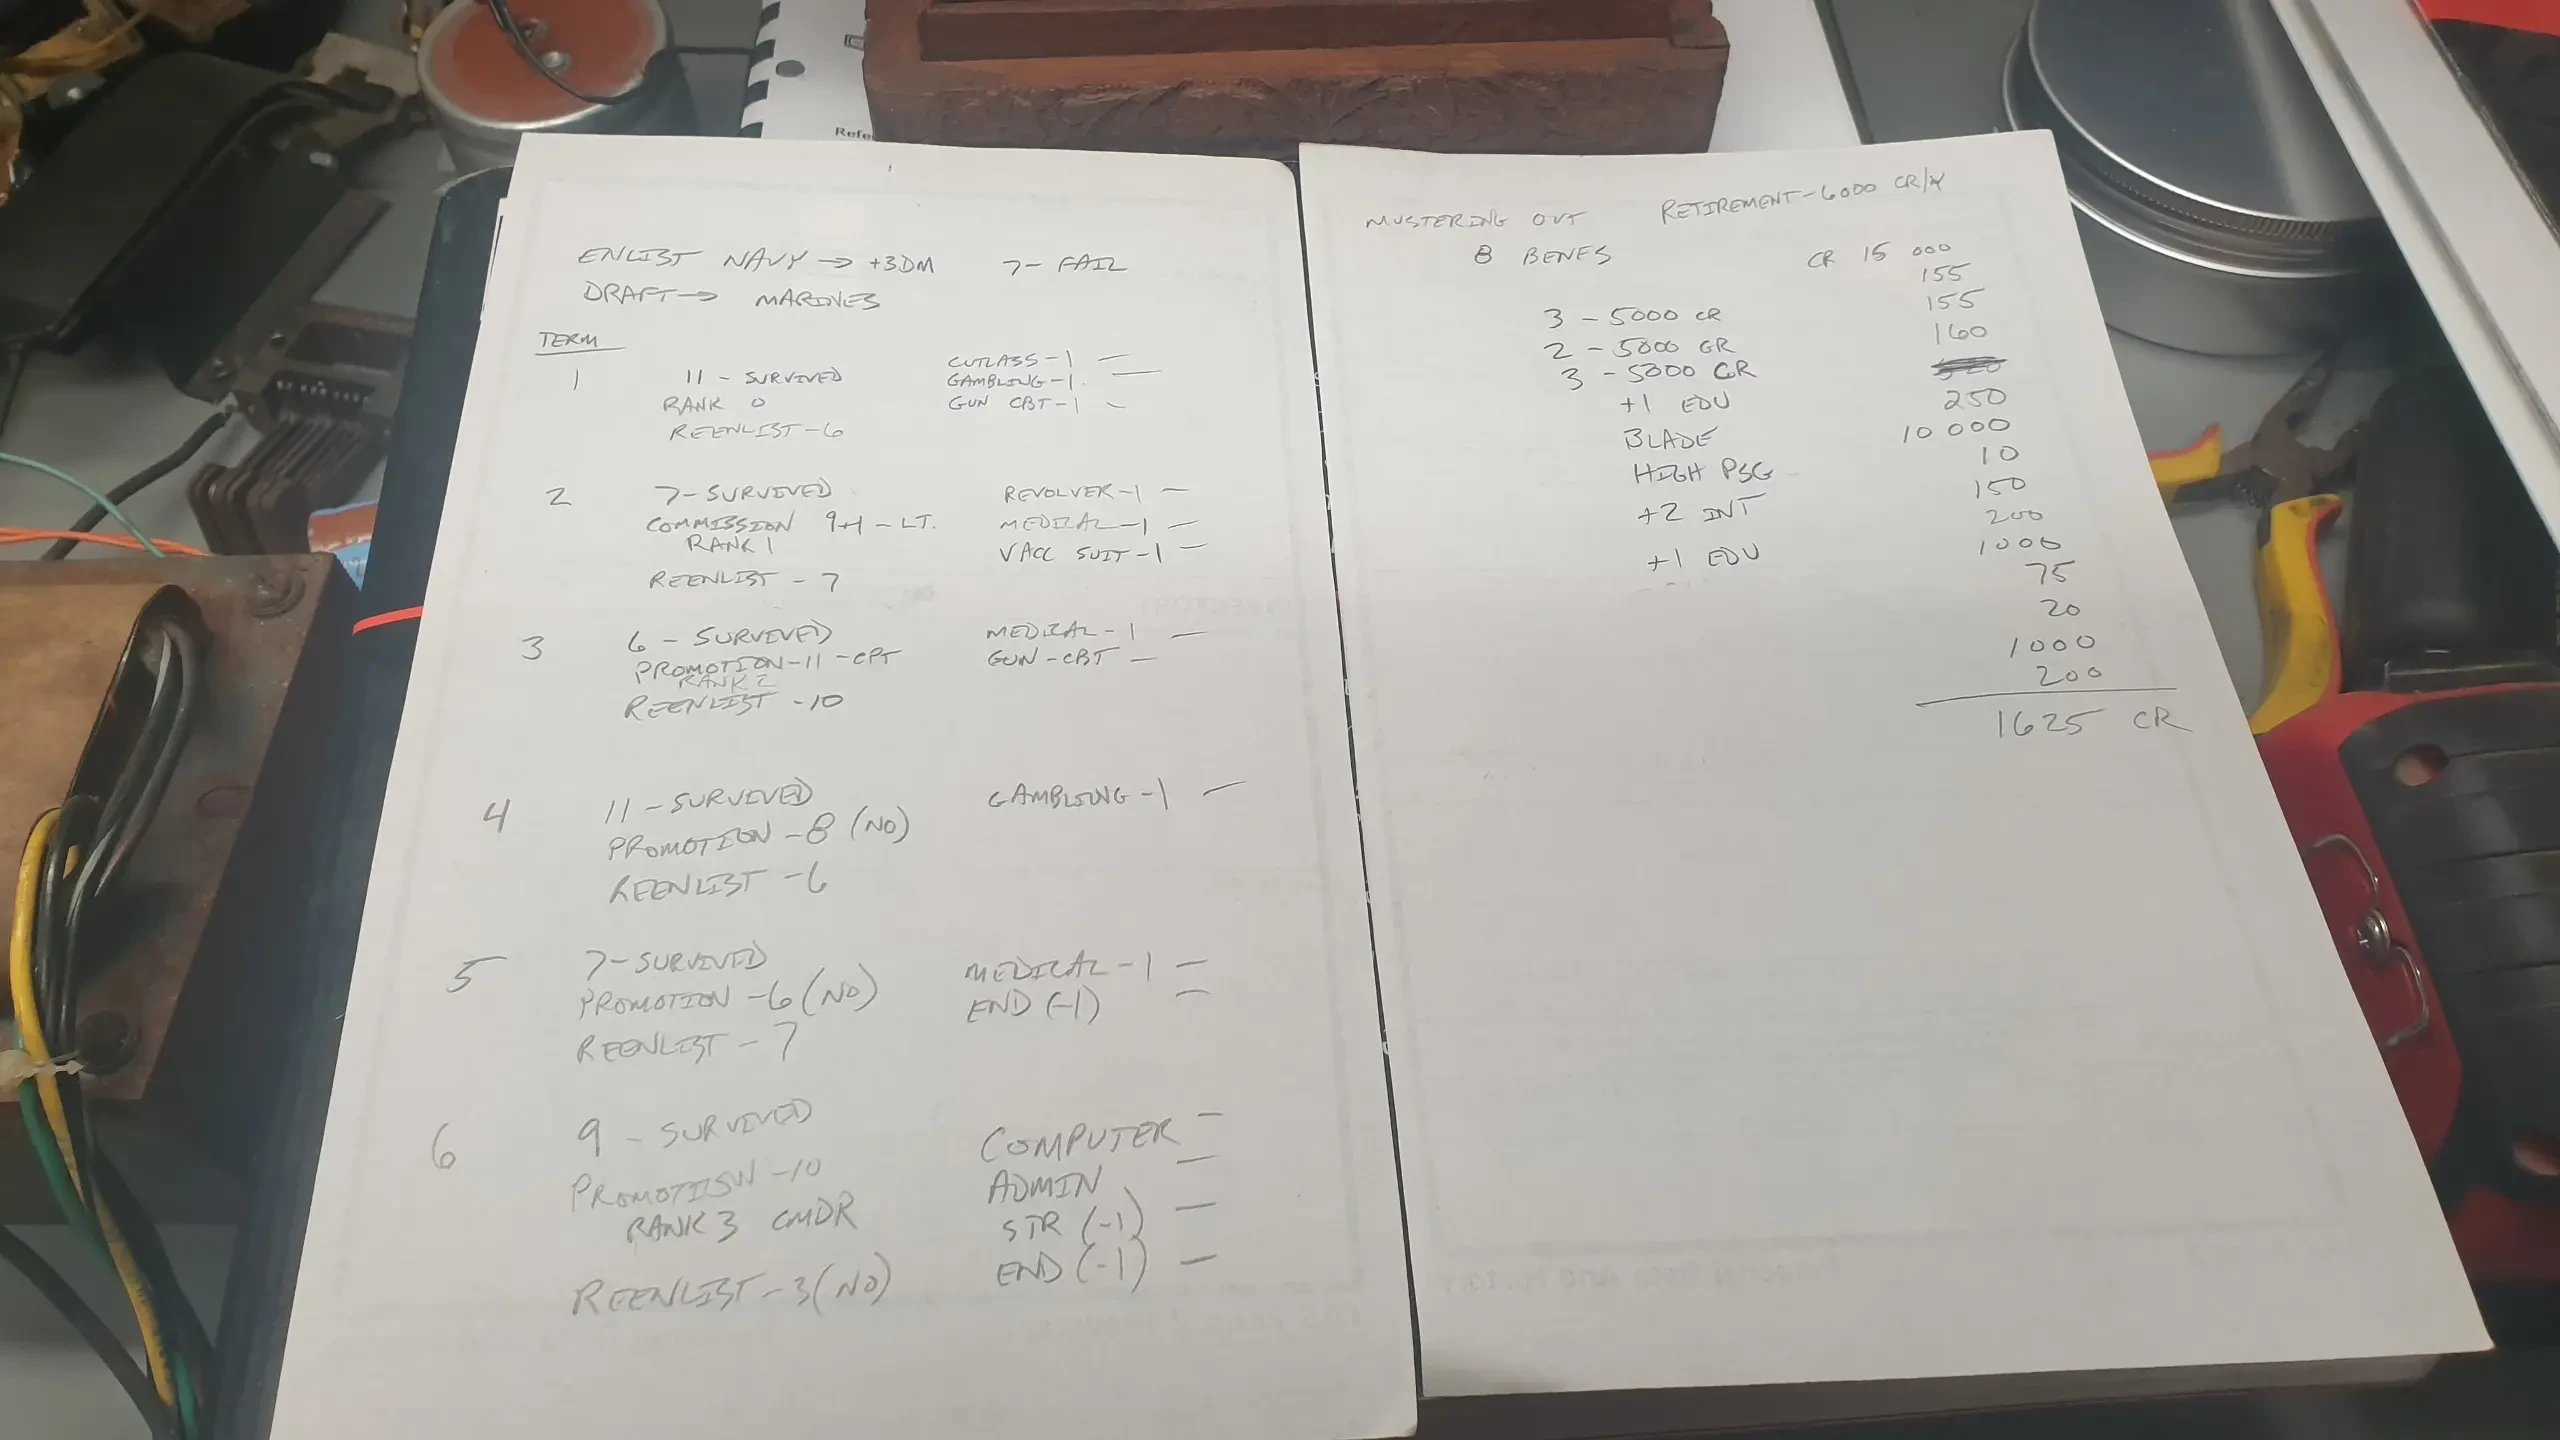 Refe
ENLIST NAVY → +3DM 7- FAIL
DRAFT → MARINES
TERM
1 11 - SURVIVED
RANK 0
REENLIST - 6
CUTLASS - 1 -
GAMBLING - 1. -
GUN CBT - 1 -
2 7 - SURVIVED
COMMISSION 9+1 - LT.
RANK 1
REENLIST - 7
REVOLVER - 1 -
MEDICAL - 1 -
VACC SUIT - 1 -
3 6 - SURVIVED
PROMOTION - 11 - CPT
RANK 2
REENLIST - 10
MEDICAL - 1 -
GUN - CBT -
4 11 - SURVIVED
PROMOTION - 8 (NO)
REENLIST - 6
GAMBLING - 1 -
5 7 - SURVIVED
PROMOTION - 6 (NO)
REENLIST - 7
MEDICAL - 1 -
END (-1) -
6 9 - SURVIVED
PROMOTION - 10
RANK 3 CMDR
REENLIST - 3 (NO)
COMPUTER -
ADMIN -
STR (-1) -
END (-1) -
MUSTERING OUT RETIREMENT - 6000 CR/Y
8 BENES
3 - 5000 CR
2 - 5000 CR
3 - 5000 CR
+1 EDU
BLADE
HIGH PSG
+2 INT
+1 EDU
CR 15 000
155
155
160
250
10 000
10
150
200
1000
75
20
1000
200
1625 CR